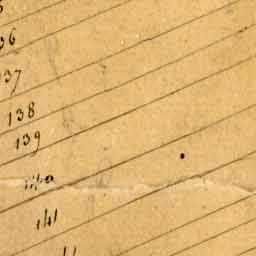 36
37
138
139
140
141